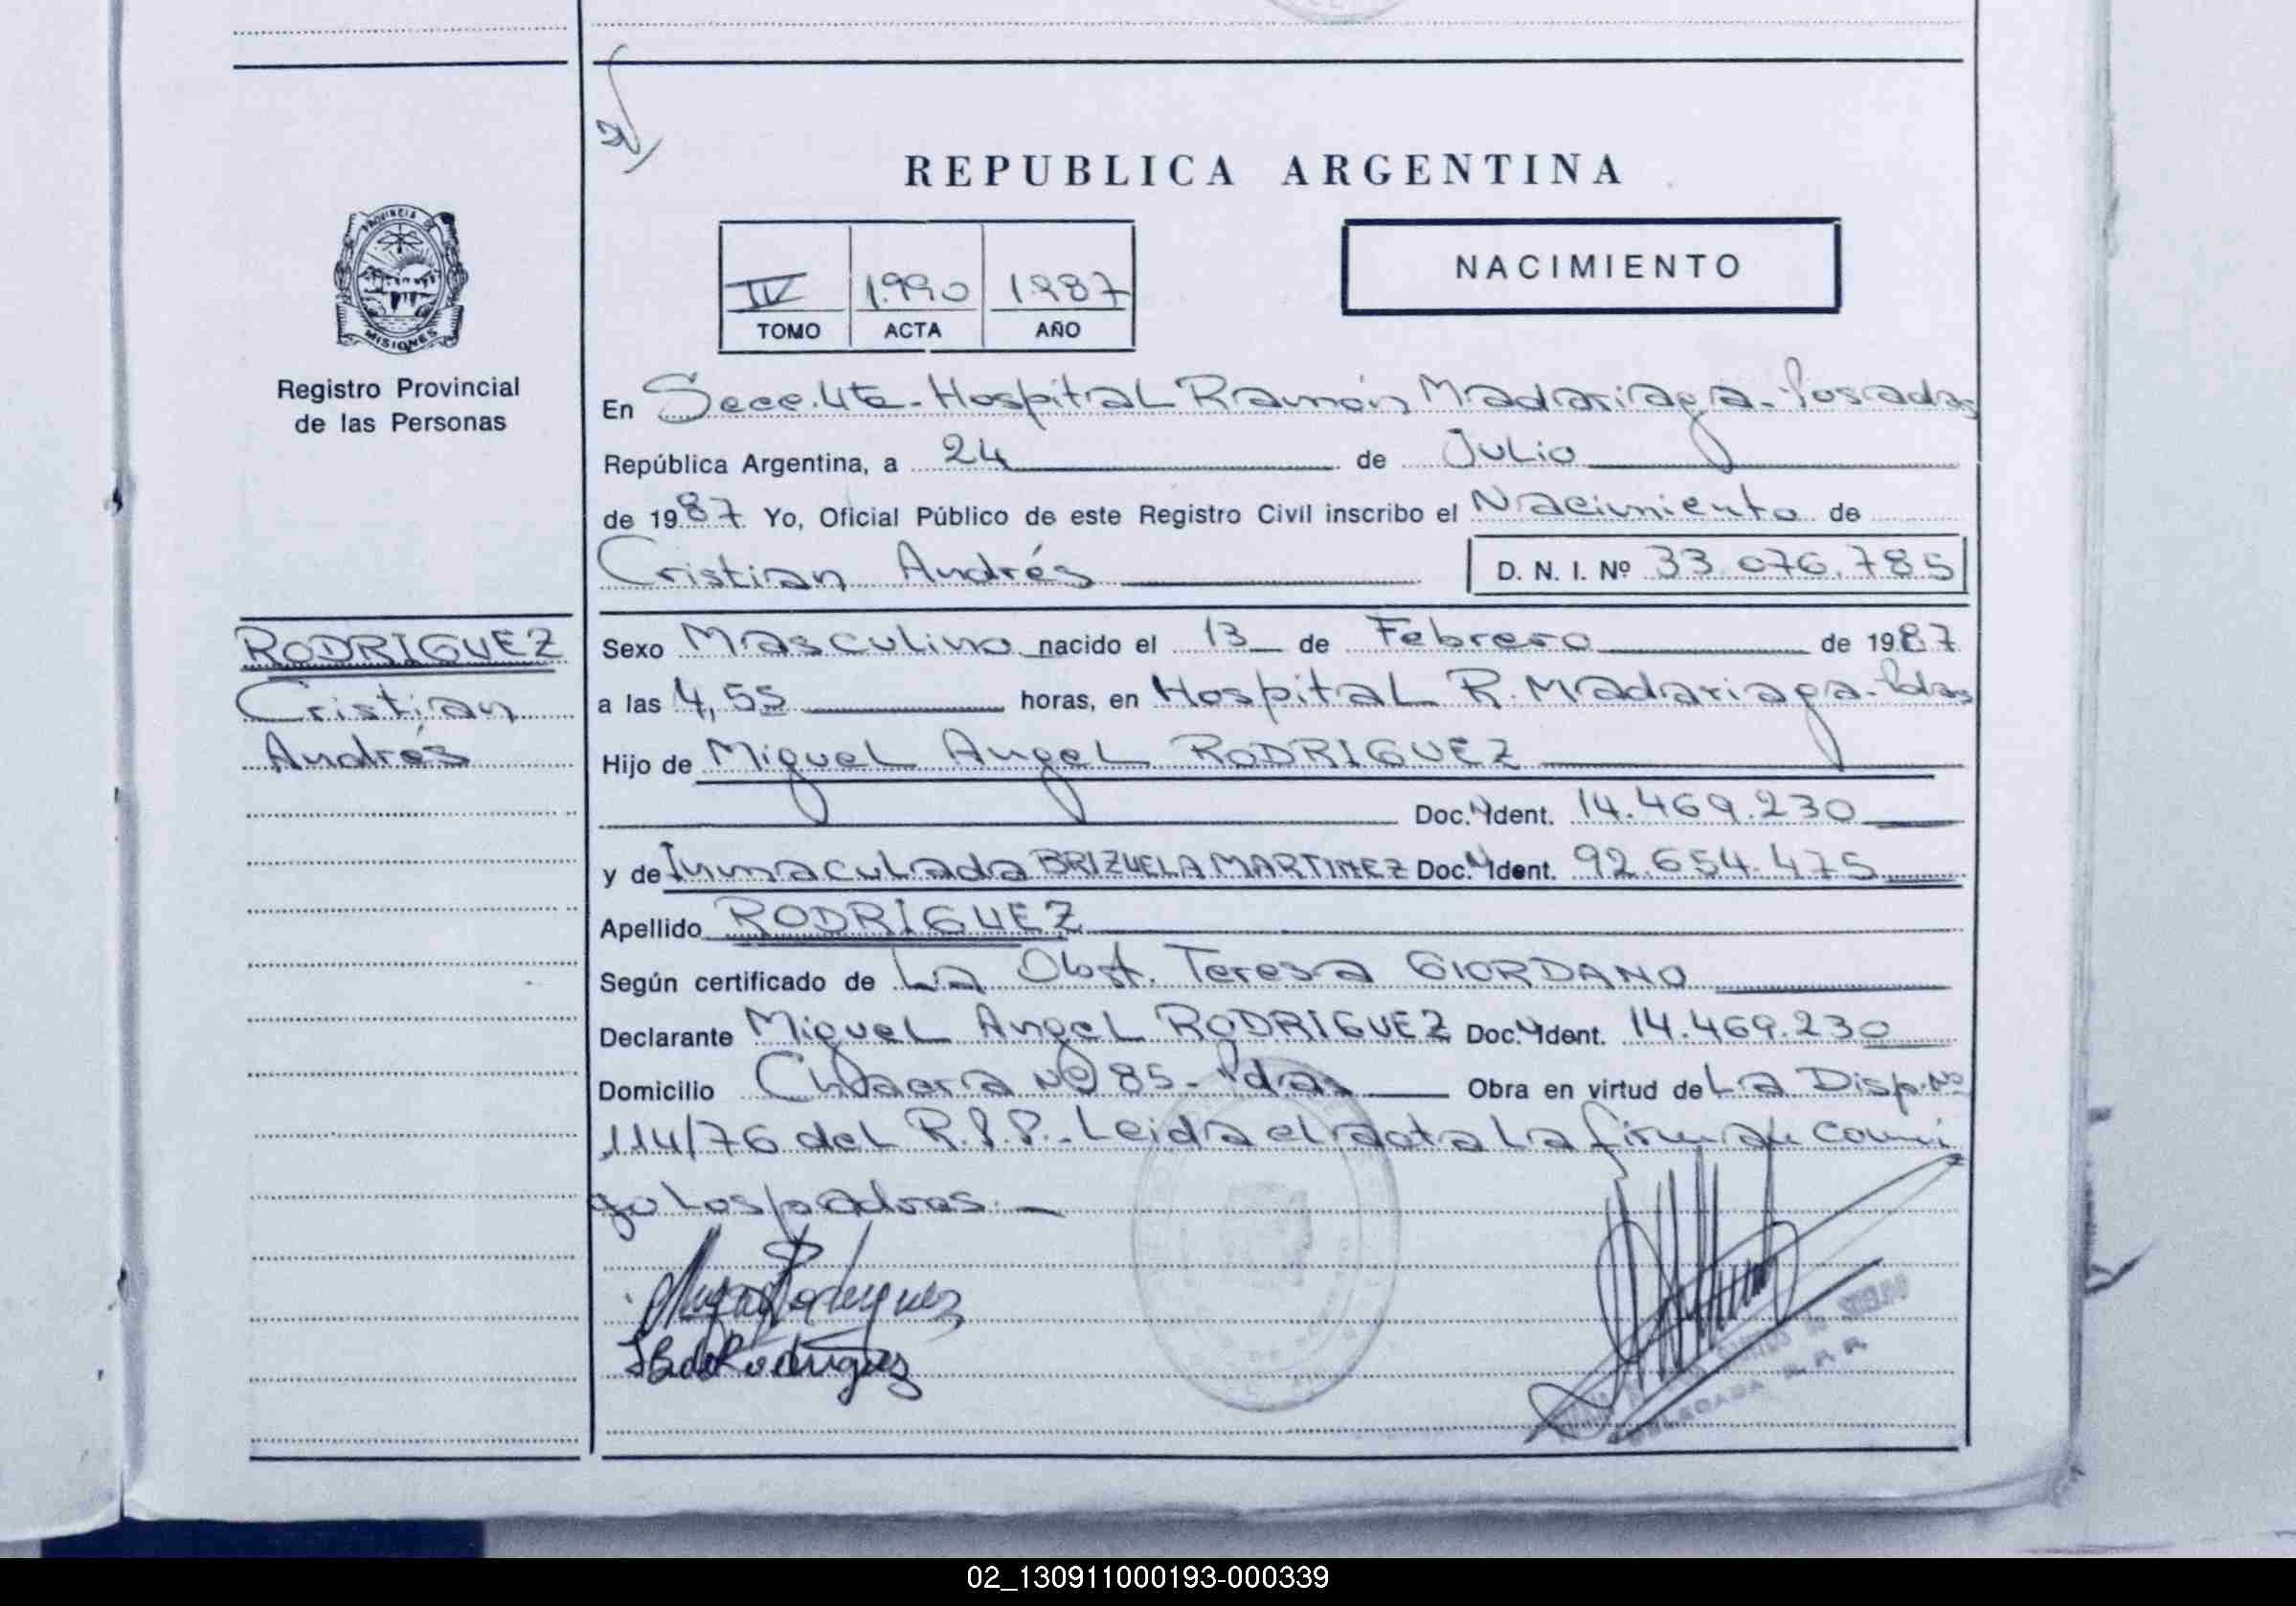 REPUBLICA ARGENTINA
PROVINCIA DE
MISIONES
Registro Provincial
de las Personas
IV 1.990 1.987
TOMO ACTA AÑO
NACIMIENTO
En Secc. 4ta - Hospital Ramón Madariaga - Posadas
República Argentina, a 24 de Julio
de 1987 Yo, Oficial Público de este Registro Civil inscribo el Nacimiento de
Cristian Andrés D. N. I. Nº 33.076.785
RODRIGUEZ
Cristian
Andrés
Sexo Masculino nacido el 13 de Febrero de 1987
a las 4,55 horas, en Hospital R. Madariaga - Pdas
Hijo de Miguel Angel RODRIGUEZ
Doc. Ident. 14.469.230
y de Inmaculada BRIZUELA MARTINEZ Doc. Ident. 92.654.475
Apellido RODRIGUEZ
Según certificado de La Obst. Teresa GIORDANO
Declarante Miguel Angel RODRIGUEZ Doc. Ident. 14.469.230
Domicilio Chacra Nº 85 - Pdas Obra en virtud de La Disp. Nº
114/76 del R.P.P. - Leida el acta La firman conmi
go Los padres. -
Rodriguez
Rodriguez
DELEGADA R. P. P.
02_130911000193-000339